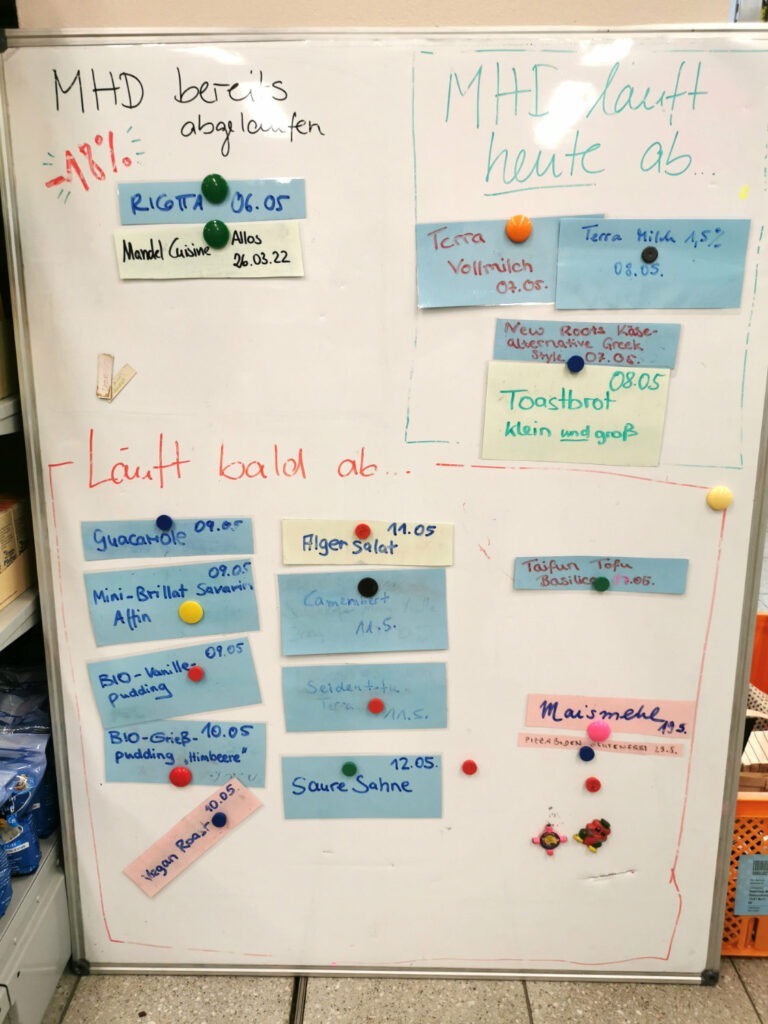 MHD bereits
abgelaufen
-18%
RIGTTA 06.05
Mandel Cuisine Allos
26.03.22
MHD läuft
heute ab...
Terra
Vollmilch
07.05.
Terra Milch 1,5%
08.05.
New Roots Käse-
alternative Greek
Style 07.05.
08.05
Toastbrot
klein und groß
Läuft bald ab...
Guacamole 09.05
09.05
Mini-Brillat Savarin
Affin
09.05
BIO-Vanille-
pudding
BIO-Grieß- 10.05
pudding "Himbeere"
10.05.
Vegan Roast
11.05
Algensalat
Camembert
11.5.
Seidentofu
Terra 11.5.
12.05.
Saure Sahne
Taifun Tofu
Basilico 17.05.
Maismehl
19.5.
PIZZABODEN GLUTENFREI 23.5.